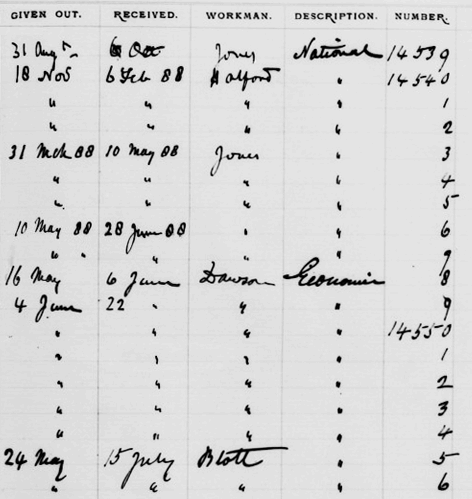 GIVEN OUT. RECEIVED. WORKMAN. DESCRIPTION. NUMBER.
31 Augt. 6 Oct Jones National 14539
18 Nov 6 Feb 88 Halford " 14540
" " " " 1
" " " " 2
31 Mch 88 10 May 88 Jones " 3
" " " " 4
" " " " 5
10 May 88 28 June 88 " " 6
" " " " " 7
16 May 6 June Dawson Economic 8
4 June 22 " " " 9
" " " " 14550
" " " " 1
" " " " 2
" " " " 3
" " " " 4
24 May 15 July Blott " 5
" " " " 6